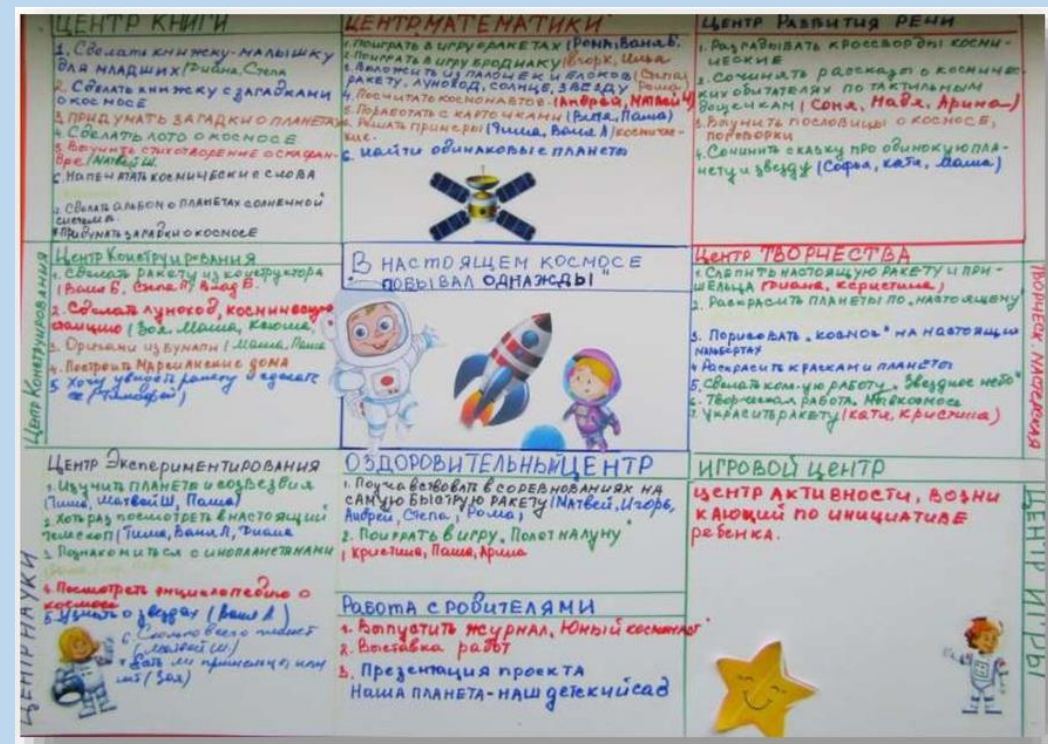 ЦЕНТР КНИГИ
1. Сделать книжку-малышку
для младших (Диана, Степа
2. Сделать книжку с загадками
о космосе
3. Придумать загадки о планетах
4. Сделать лото о космосе
5. Выучить стихотворение о скафан-
дре (Матвей Ш.
6. Напечатать космические слова
Сделать альбом о планетах солнечной
системы.
Придумать загадки о космосе
ЦЕНТР МАТЕМАТИКИ
1. Поиграть в игру о ракетах (Рома, Ваня Б.
2. Поиграть в игру Вроднику (Егорк, Илья
3. Выложить из палочек и блоков (Степа)
ракету, луноход, солнце, звезду Рома,
4. Посчитать космонавтов. (Андрей, Матвей Ч)
5. Поработать с карточками (Витя, Паша)
Решать примеры (Тиша, Ваня Л) космиче-
кие.
6. Найти одинаковые планеты
ЦЕНТР РАЗВИТИЯ РЕЧИ
1. Разгадывать кроссворды косми-
ческие
2. Сочинять рассказы о космичес-
ких обитателях по тактильным
дощечкам (Соня, Надя, Арина)
3. Выучить пословицы о космосе,
поговорки
4. Сочинить сказку про одинокую пла-
нету и звезду (Софья, Катя, Маша)
Центр Конструирования
Центр Конструирования
1. Сделать ракету из конструктора
(Ваня Б. Степа П, Влад Б.
2. Сделать луноход, космическую
станцию (Зоя, Маша, Ксюша,
3. Оригами из бумаги (Маша, Паша
4. Построить Марсианские дома
5. Хочу увидеть ракету и сделать
ее (Тимофей)
В НАСТОЯЩЕМ КОСМОСЕ
ПОБЫВАЛ ОДНАЖДЫ"
Центр ТВОРЧЕСТВА
1. Слепить настоящую ракету и при-
шельца (Диана, Кристина)
2. Раскрасить планеты по "настоящему
3. Порисовать "космос" на настоящих
мольбертах
4 Раскрасить красками планеты
5. Сделать ком-ую работу "Звездное небо"
6. Творческая работа. Мы в космосе
7. Украсить ракету (Катя, Кристина)
ТВОРЧЕСК. МАСТЕРСКАЯ
ЦЕНТР НАУКИ
Центр Экспериментирования
1. Изучить планеты и созвездия
(Тиша, Матвей Ш, Паша)
2. Хоть раз посмотреть в настоящий
телескоп (Тиша, Ваня Л, Диана
3. Познакомиться с инопланетянами
4. Посмотреть энциклопедию о
космосе
5. Узнать о звездах (Ваня Л)
6. Сколько всего планет
(Матвей Ш.)
7. Есть ли пришельцы или
нет (Зоя)
ОЗДОРОВИТЕЛЬНЫЙ ЦЕНТР
1. Поучавствовать в соревнованиях на
самую быструю ракету (Матвей, Игорь,
Андрей, Степа, Рома,
2. Поиграть в игру "Полет на луну"
(Кристина, Паша, Арина
Работа с родителями
1. Выпустить журнал "Юный космонавт"
2. Выставка работ
3. Презентация проекта
Наша планета - наш детский сад
ИГРОВОЙ ЦЕНТР
ЦЕНТР АКТИВНОСТИ, ВОЗНИ
КАЮЩИЙ ПО ИНИЦИАТИВЕ
ребенка.
ЦЕНТР ИГРЫ